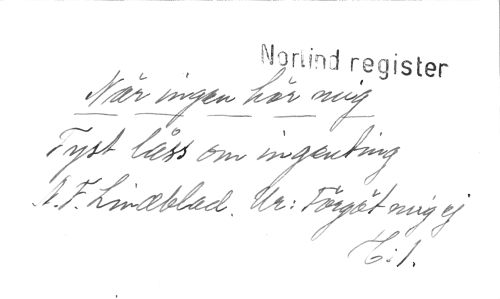 Norlind register
När ingen hör mig
Tyst låss om ingenting
A. F. Lindblad. Ur: Förgät mig ej
H: 1.